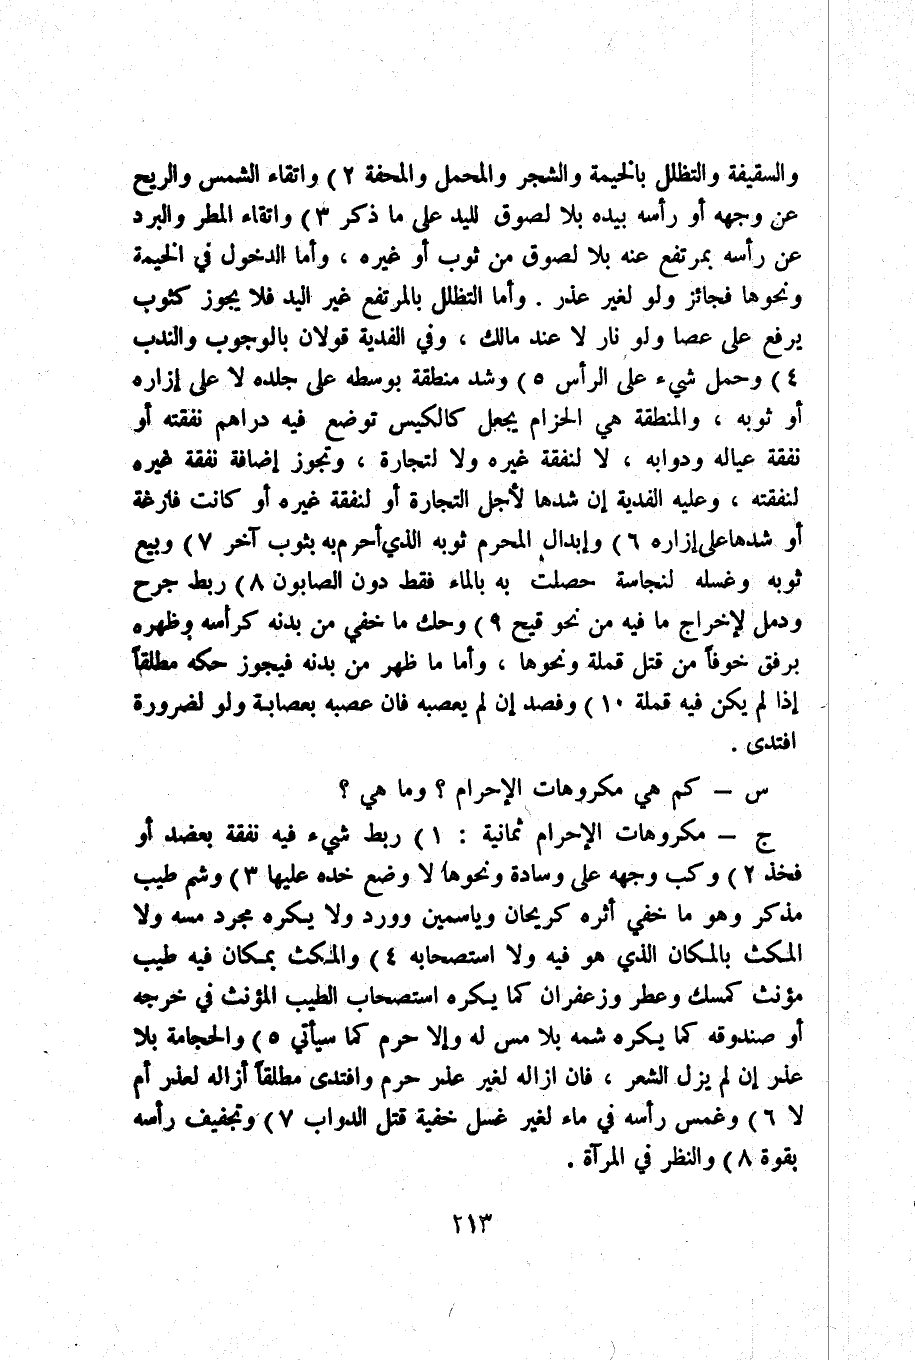 والسقيفة والتظلل بالخيمة والشجر والمحمل والمحفة ٢ ) واتقاء الشمس والريح
عن وجهه أو رأسه بيده بلا لصوق لليد على ما ذكر ٣ ) واتقاء المطر والبرد
عن رأسه بمرتفع عنه بلا لصوق من ثوب أو غيره ، وأما الدخول في الخيمة
ونحوها فجائز ولو لغير عذر . وأما التظلل بالمرتفع غير اليد فلا يجوز كثوب
يرفع على عصا ولو نار لا عند مالك ، وفي الفدية قولان بالوجوب والندب
٤ ) وحمل شيء على الرأس ٥ ) وشد منطقة بوسطه على جلده لا على إزاره
أو ثوبه ، والمنطقة هي الحزام يجعل كالكيس توضع فيه دراهم نفقته أو
نفقة عياله ودوابه ، لا لنفقة غيره ولا لتجارة ، وتجوز إضافة نفقة غيره
لنفقته ، وعليه الفدية إن شدها لأجل التجارة أو لنفقة غيره أو كانت فارغة
أو شدها على إزاره ٦ ) وإبدال المحرم ثوبه الذي أحرم به بثوب آخر ٧ ) وبيع
ثوبه وغسله لنجاسة حصلت به بالماء فقط دون الصابون ٨ ) ربط جرح
ودمل لإخراج ما فيه من نحو قيح ٩ ) وحك ما خفي من بدنه كرأسه وظهره
برفق خوفاً من قتل قملة ونحوها ، وأما ما ظهر من بدنه فيجوز حكه مطلقاً
إذا لم يكن فيه قملة ١٠ ) وفصد إن لم يعصبه فان عصبه بعصابة ولو لضرورة
افتدى .
س – كم هي مكروهات الإحرام ؟ وما هي ؟
ج – مكروهات الإحرام ثمانية : ١ ) ربط شيء فيه نفقة بعضد أو
فخذ ٢ ) وكب وجهه على وسادة ونحوها لا وضع خده عليها ٣ ) وشم طيب
مذكر وهو ما خفي أثره كريحان وياسمين وورد ولا يكره مجرد مسه ولا
المكث بالمكان الذي هو فيه ولا استصحابه ٤ ) والمكث بمكان فيه طيب
مؤنث كمسك وعطر وزعفران كما يكره استصحاب الطيب المؤنث في خرجه
أو صندوقه كما يكره شمه بلا مس له وإلا حرم كما سيأتي ٥ ) والحجامة بلا
عذر إن لم يزل الشعر ، فان ازاله لغير عذر حرم وافتدى مطلقاً أزاله لعذر أم
لا ٦ ) وغمس رأسه في ماء لغير غسل خفية قتل الدواب ٧ ) وتجفيف رأسه
بقوة ٨ ) والنظر في المرآة .
٢١٣